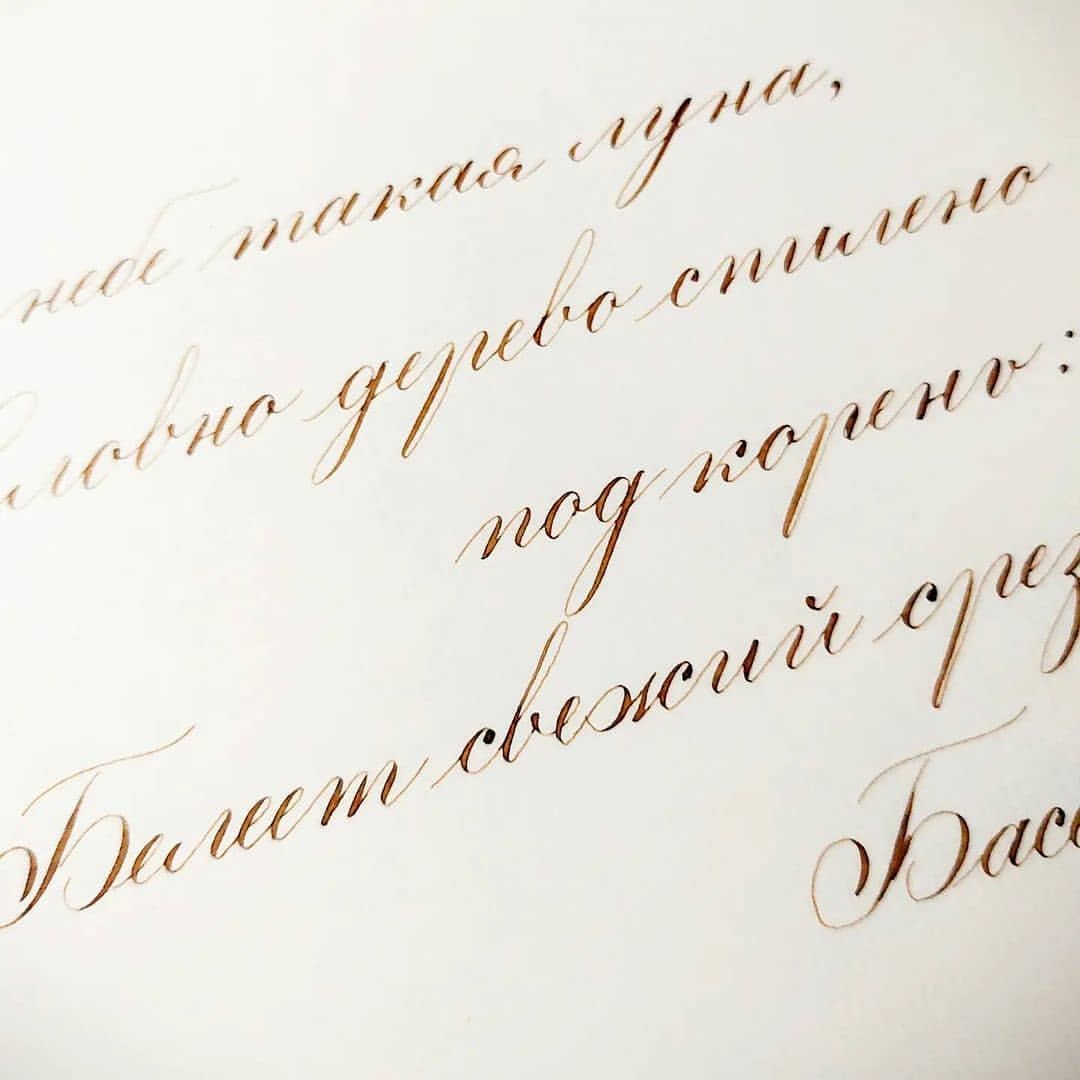 небе такая луна,
словно дерево спилено
под корень:
Белеет свежий срез
Басё